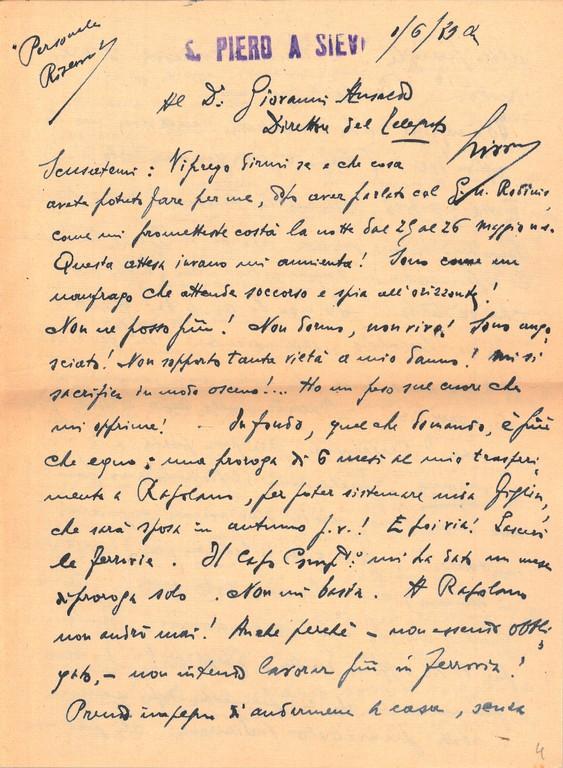 "Personale
Riservata"
S. PIERO A SIEVE
1/6/39
Al Dr Giovanni Ansaldo
Direttore del Telegrafo
Livorno
Scusatemi: Vi prego dirmi se e che cosa
avete potuto fare per me, dopo aver parlato col
come mi prometteste costà la notte dal 25 al 26 maggio u.s.
Questa attesa invano mi annienta! Sono come un
naufrago che attende soccorso e spia all'orizzonte!
Non ne posso più! Non dormo, non vivo! Sono ango
sciato! Non sopporto tanta viltà a mio danno! Mi si
sacrifica in modo osceno!... Ho un peso sul cuore che
mi opprime! - In fondo, quel che domando, è più
che equo: una proroga di 6 mesi al mio trasferi
mento a Rapolano, per poter sistemare mia figlia,
che sarà sposa in autunno p.v.! E poi via! Lascerò
le Ferrovie. Il Capo mi ha dato un mese
di proroga solo. Non mi basta. A Rapolano
non andrò mai! Anche perchè - non essendo obbli
gato, - non intendo lavorar più in Ferrovia!
Prendo impegno di andarmene a casa, senza
4